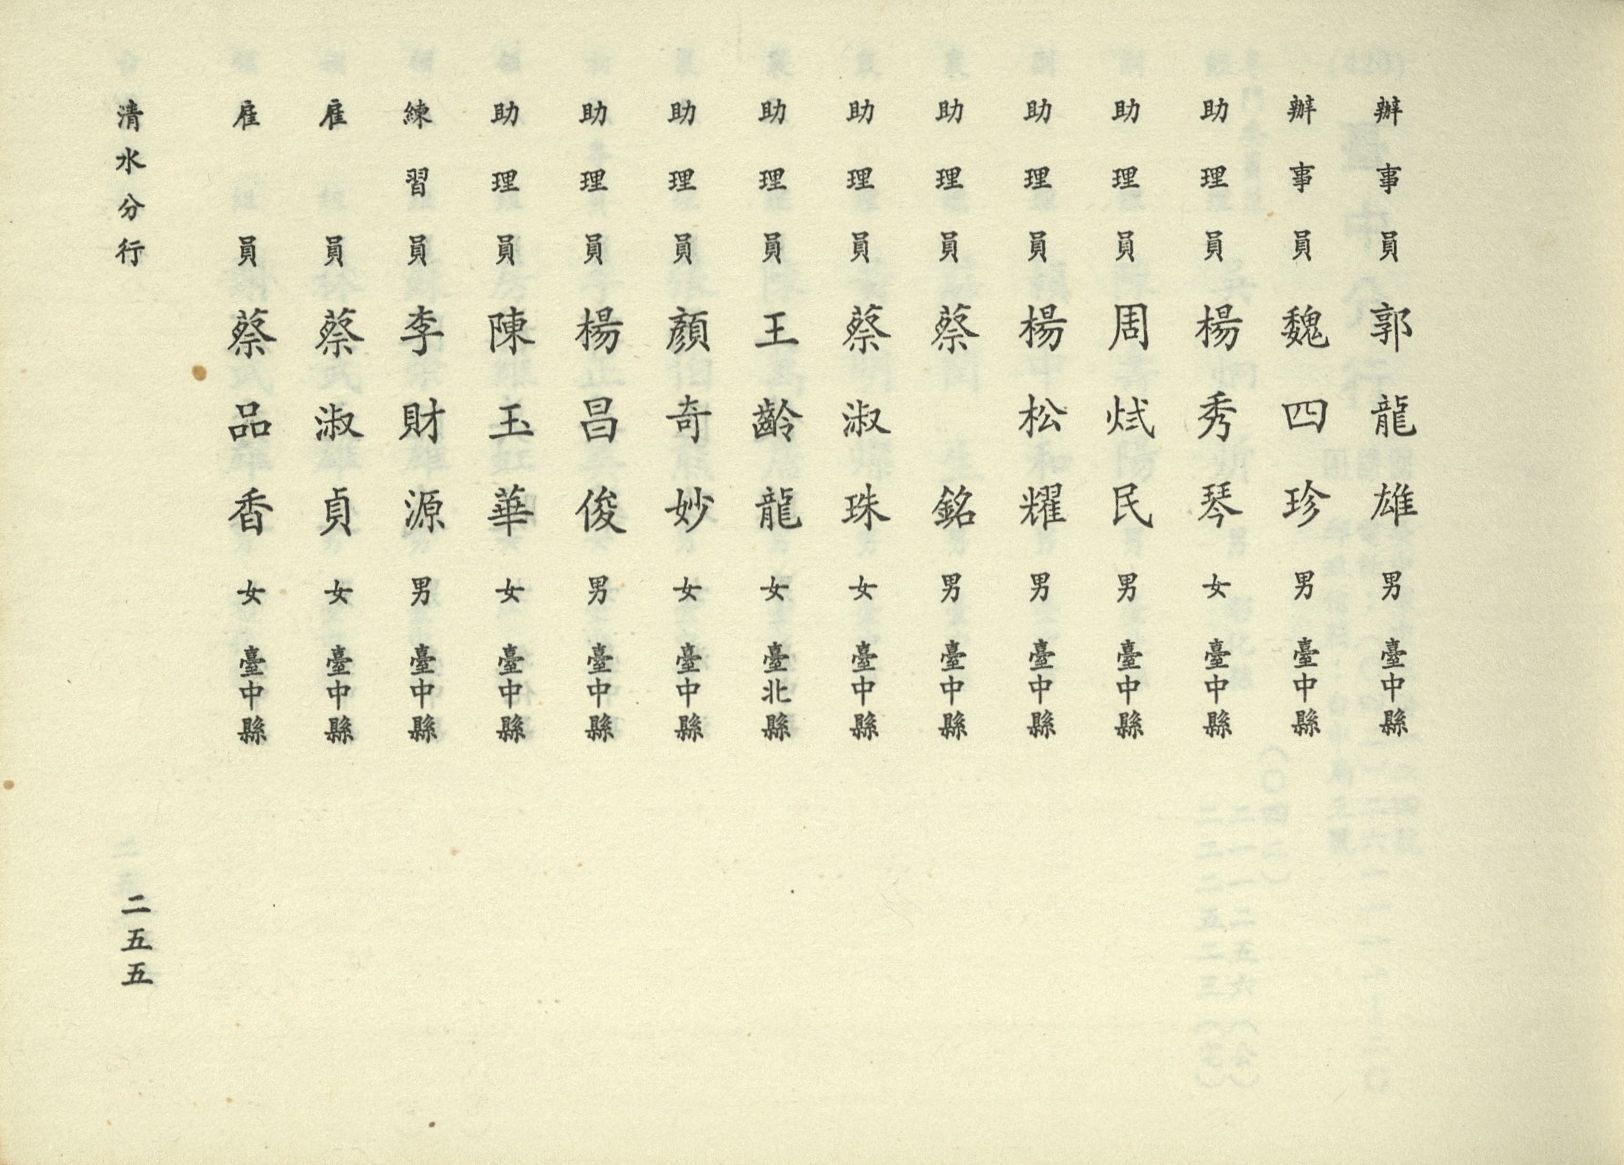 辦事員 郭龍雄 男 臺中縣
辦事員 魏四珍 男 臺中縣
助理員 楊秀琴 女 臺中縣
助理員 周烒民 男 臺中縣
助理員 楊松耀 男 臺中縣
助理員 蔡銘 男 臺中縣
助理員 蔡淑珠 女 臺中縣
助理員 王齡龍 女 臺北縣
助理員 顏奇妙 女 臺中縣
助理員 楊昌俊 男 臺中縣
助理員 陳玉華 女 臺中縣
練習員 李財源 男 臺中縣
雇員 蔡淑貞 女 臺中縣
雇員 蔡品香 女 臺中縣
清水分行
二五五